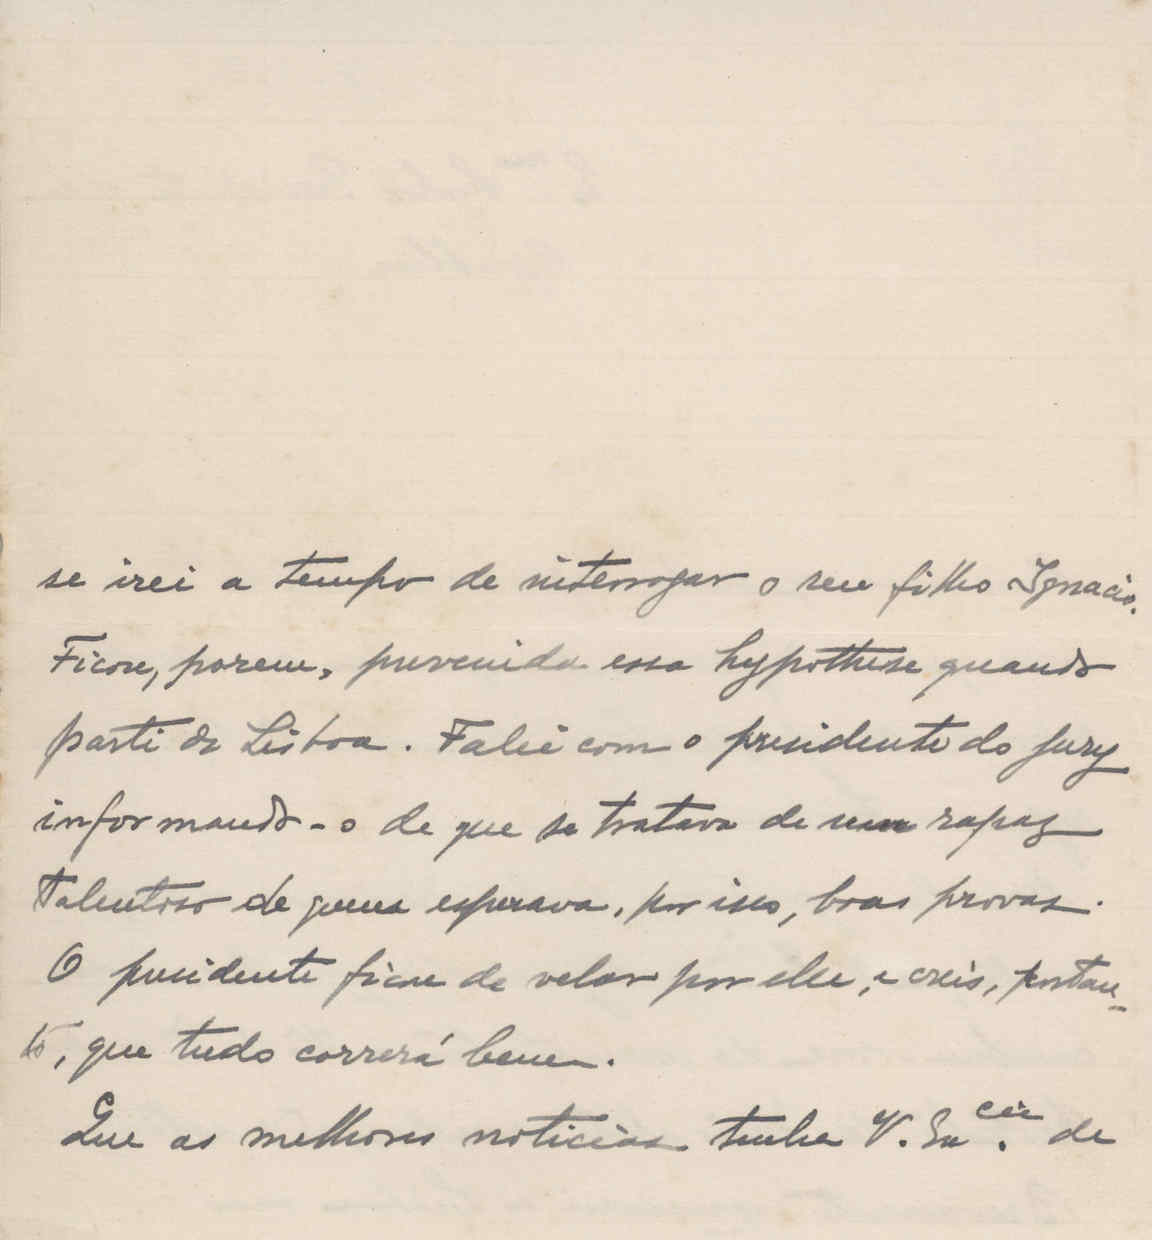 se irei a tempo de interrogar o seu filho Ignacio.
Ficou, porem, prevenida essa hypothese quando
parti de Lisboa. Falei com o presidente do jury
informando-o de que se tratava de um rapaz
talentoso de quem esperava, por isso, boas provas.
O presidente ficou de velar por elle, e creio, portan-
to, que tudo correrá bem.
Que as melhores noticias tenha V. Ex.cia de